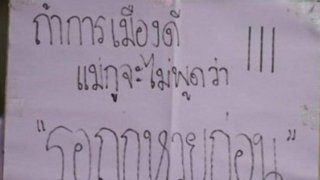 ถ้าการเมืองดี
แม่กูจะไม่พูดว่า |||
"รอถูกหวยก่อน"